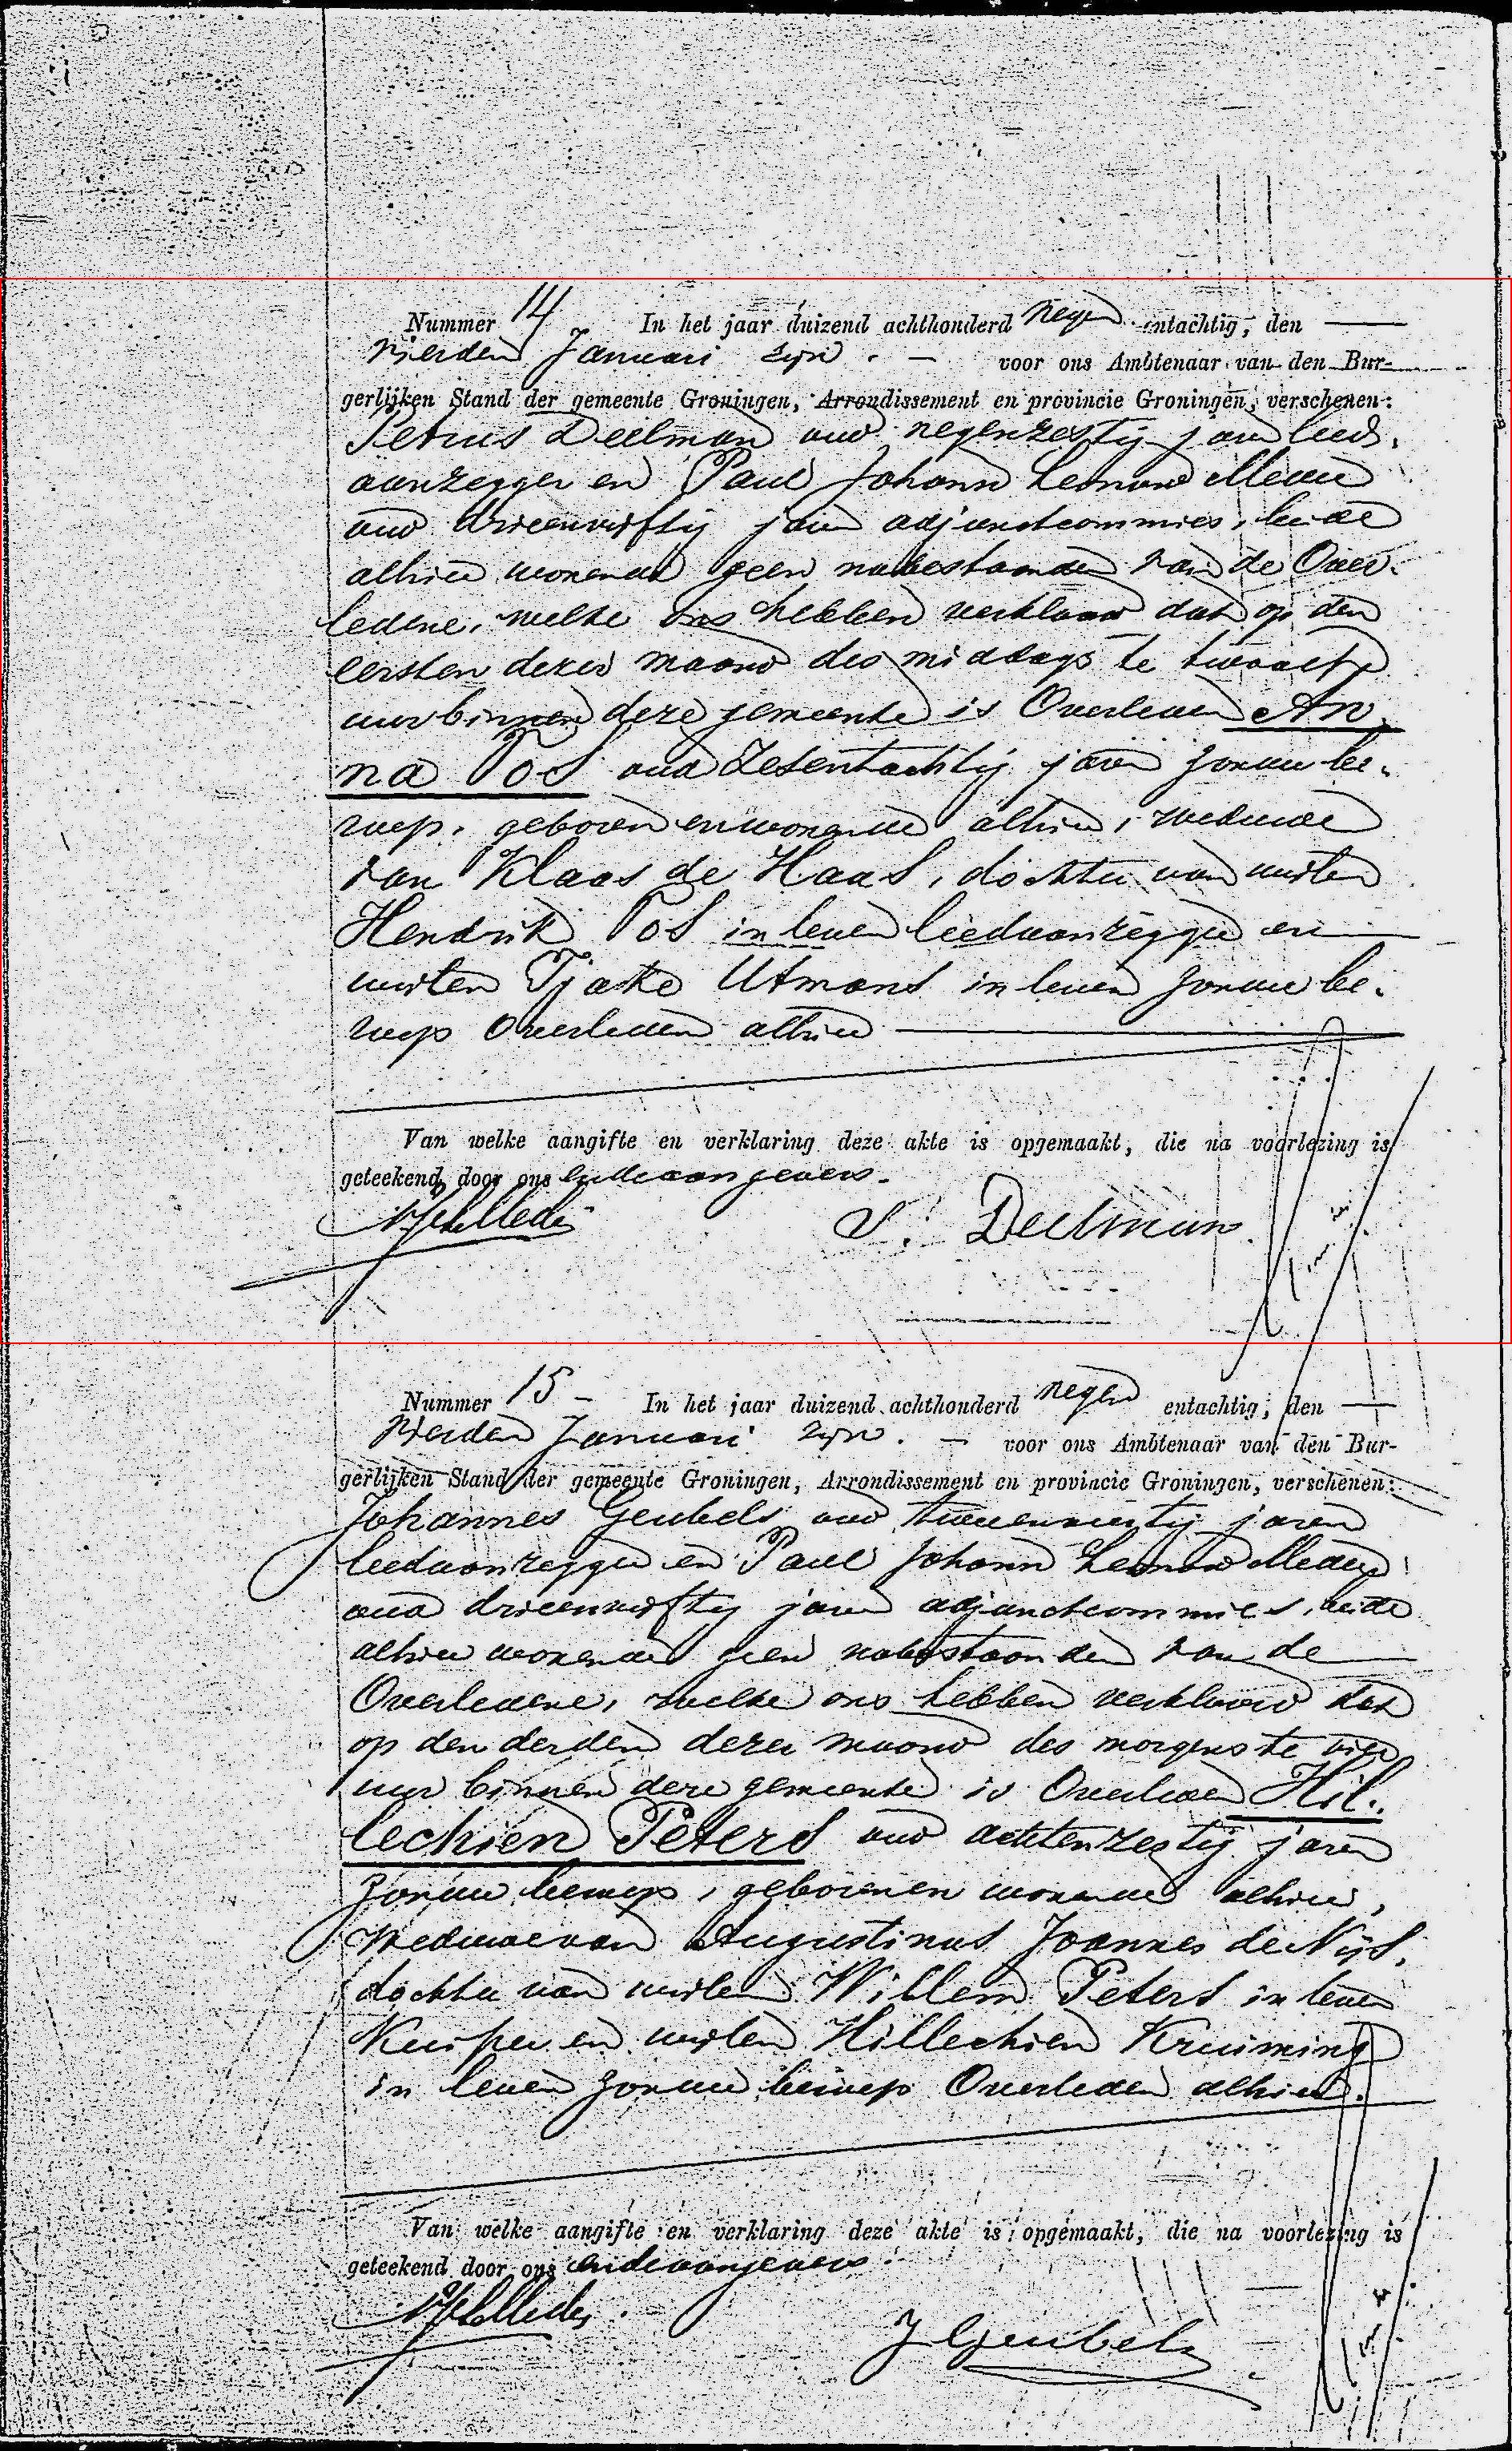 Nummer 14 In het jaar duizend achthonderd negen entachtig, den
vierden Januari zijn. voor ons Ambtenaar van den Bur-
gerlijken Stand der gemeente Groningen, Arrondissement en provincie Groningen, verschenen:
Petrus Deelman oud negenzestig jaren leed-
aanzegger en Paul Johann Leonard Meder
oud drieenvijftig jaren adjunctcommies, beide
alhier wonende geen nabestaanden van de Over-
ledene, welke ons hebben verklaard dat op den
eersten dezer maand des middags te twaalf
uur binnen deze gemeente is Overleden An-
na Pos oud zesentachtig jaren zonder be-
roep, geboren en wonende alhier, weduwe
van Klaas de Haas, dochter van wijlen
Hendrik Pos in leven leedaanzegger en
wijlen Tjakte Utmans in leven zonder be-
roep Overleden alhier
Van welke aangifte en verklaring deze akte is opgemaakt, die na voorlezing is
geteekend door ons en de aangevers.
P. Deelman
Nummer 15 - In het jaar duizend achthonderd negen entachtig, den
vierden Januari zijn. voor ons Ambtenaar van den Bur-
gerlijken Stand der gemeente Groningen, Arrondissement en provincie Groningen, verschenen:
Johannes Geubels oud tweeenveertig jaren
leedaanzegger en Paul Johann Leonard Meder
oud drieenvijftig jaren adjunctcommies, beide
alhier wonende geen nabestaanden van de
Overledene, welke ons hebben verklaard dat
op den derden dezer maand des morgens te vier
uur binnen deze gemeente is Overleden Hil-
lechien Peters oud achtenzestig jaren
zonder beroep, geboren en wonende alhier,
weduwe van Augustinus Joannes de Nijs,
dochter van wijlen Willem Peters in leven
Kuiper en wijlen Hillechien Kruiming
in leven zonder beroep Overleden alhier.
Van welke aangifte en verklaring deze akte is opgemaakt, die na voorlezing is
geteekend door ons en de aangevers.
J Geubels